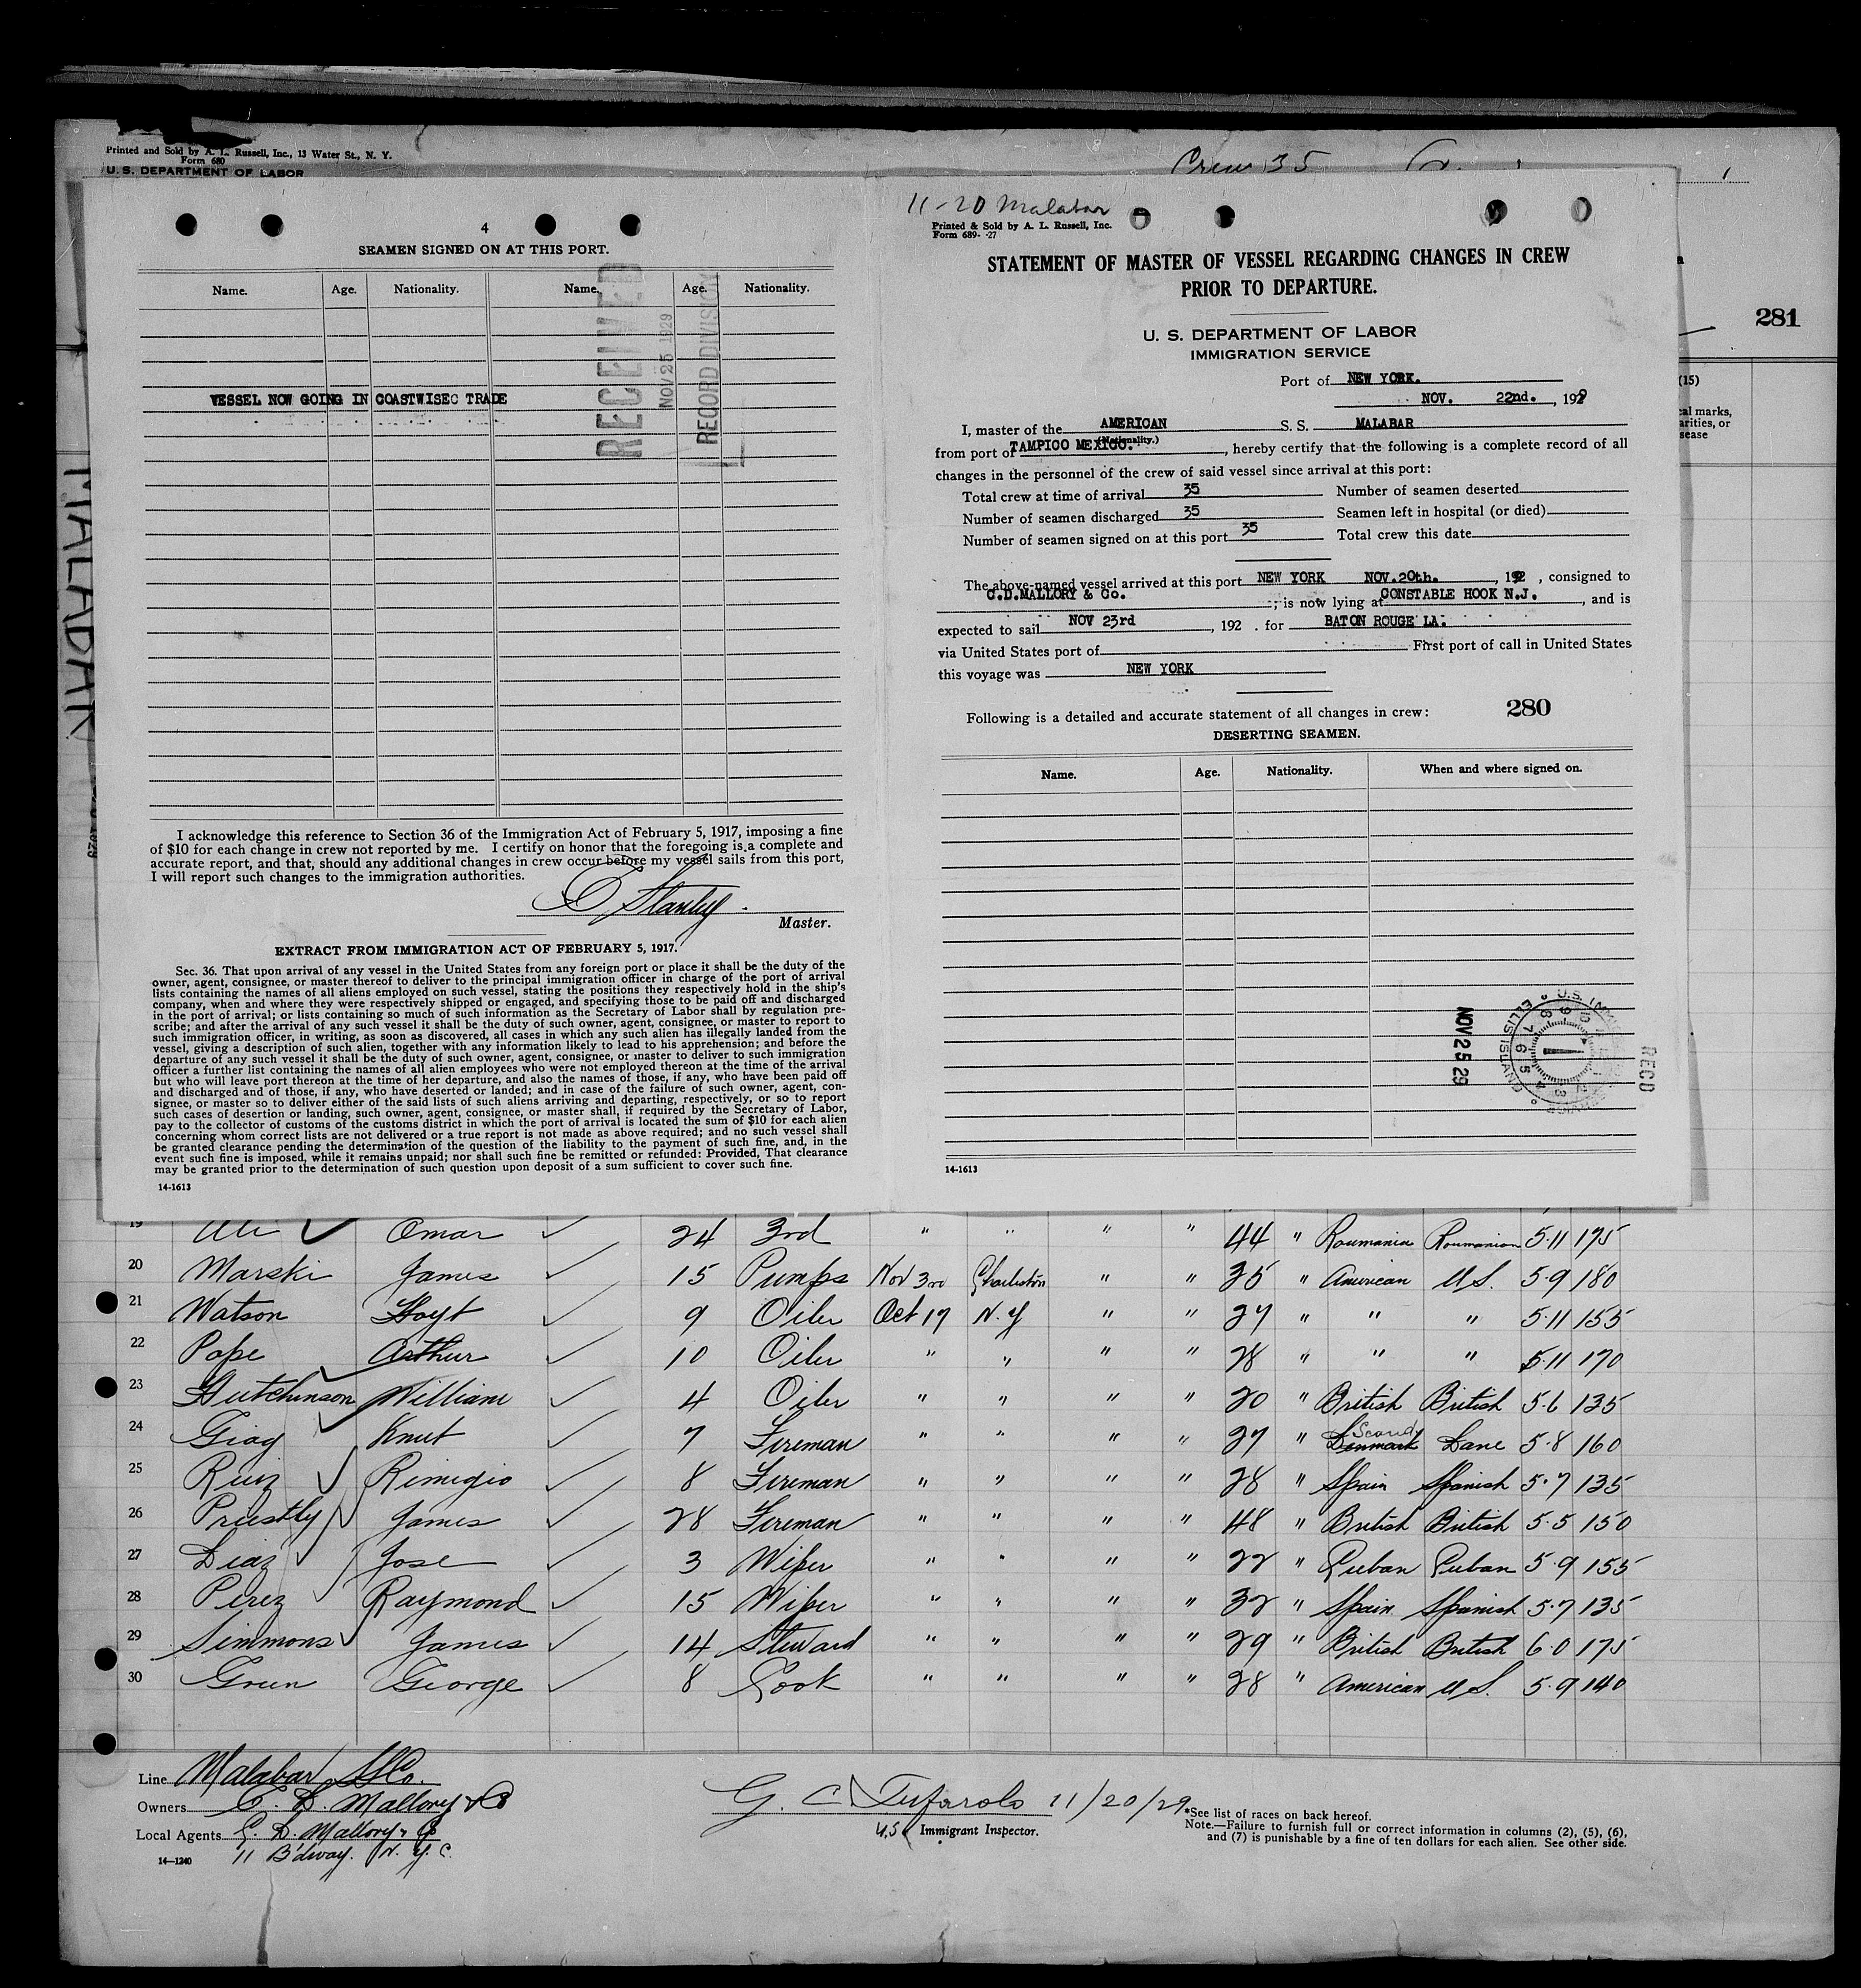 Printed and Sold by A. L. Russell, Inc., 13 Water St., N. Y.
Form 680
U. S. DEPARTMENT OF LABOR
Crew 35
281
(15)
cal marks,
arities, or
sease
MALABAR
4
SEAMEN SIGNED ON AT THIS PORT.
Name. Age. Nationality. Name. Age. Nationality.
RECEIVED
NOV 25 1929
RECORD DIVISION
VESSEL NOW GOING IN COASTWISEC TRADE
I acknowledge this reference to Section 36 of the Immigration Act of February 5, 1917, imposing a fine
of $10 for each change in crew not reported by me. I certify on honor that the foregoing is a complete and
accurate report, and that, should any additional changes in crew occur before my vessel sails from this port,
I will report such changes to the immigration authorities.
C Stanley
Master.
EXTRACT FROM IMMIGRATION ACT OF FEBRUARY 5, 1917.
Sec. 36. That upon arrival of any vessel in the United States from any foreign port or place it shall be the duty of the
owner, agent, consignee, or master thereof to deliver to the principal immigration officer in charge of the port of arrival
lists containing the names of all aliens employed on such vessel, stating the positions they respectively hold in the ship's
company, when and where they were respectively shipped or engaged, and specifying those to be paid off and discharged
in the port of arrival; or lists containing so much of such information as the Secretary of Labor shall by regulation pre-
scribe; and after the arrival of any such vessel it shall be the duty of such owner, agent, consignee, or master to report to
such immigration officer, in writing, as soon as discovered, all cases in which any such alien has illegally landed from the
vessel, giving a description of such alien, together with any information likely to lead to his apprehension; and before the
departure of any such vessel it shall be the duty of such owner, agent, consignee, or master to deliver to such immigration
officer a further list containing the names of all alien employees who were not employed thereon at the time of the arrival
but who will leave port thereon at the time of her departure, and also the names of those, if any, who have been paid off
and discharged and of those, if any, who have deserted or landed; and in case of the failure of such owner, agent, con-
signee, or master so to deliver either of the said lists of such aliens arriving and departing, respectively, or so to report
such cases of desertion or landing, such owner, agent, consignee, or master shall, if required by the Secretary of Labor,
pay to the collector of customs of the customs district in which the port of arrival is located the sum of $10 for each alien
concerning whom correct lists are not delivered or a true report is not made as above required; and no such vessel shall
be granted clearance pending the determination of the question of the liability to the payment of such fine, and, in the
event such fine is imposed, while it remains unpaid; nor shall such fine be remitted or refunded: Provided, That clearance
may be granted prior to the determination of such question upon deposit of a sum sufficient to cover such fine.
14-1613
11-20 Malabar
Printed & Sold by A. L. Russell, Inc.
Form 689- -27
STATEMENT OF MASTER OF VESSEL REGARDING CHANGES IN CREW
PRIOR TO DEPARTURE.
U. S. DEPARTMENT OF LABOR
IMMIGRATION SERVICE
Port of NEW YORK.
NOV. 22nd. , 1929
I, master of the AMERICAN S. S. MALABAR
(Nationality.)
from port of TAMPICO MEXICO. , hereby certify that the following is a complete record of all
changes in the personnel of the crew of said vessel since arrival at this port:
Total crew at time of arrival 35 Number of seamen deserted
Number of seamen discharged 35 Seamen left in hospital (or died)
Number of seamen signed on at this port 35 Total crew this date
The above-named vessel arrived at this port NEW YORK NOV.20th. , 192 , consigned to
C.D.MALLORY & Co. ; is now lying at CONSTABLE HOOK N.J. , and is
expected to sail NOV 23rd , 192 . for BATON ROUGE LA.
via United States port of First port of call in United States
this voyage was NEW YORK
Following is a detailed and accurate statement of all changes in crew: 280
DESERTING SEAMEN.
Name. Age. Nationality. When and where signed on.
NOV 25 29
U.S. IMMIGRATION SERVICE ELLIS ISLAND
RECD
14-1613
19 Ali Omar 24 3rd " " " " 44 " Roumania Roumanian 5-11 175
20 Marski James 15 Pumps Nov 3rd Charleston " " 35 " American U.S. 5-9 180
21 Watson Hoyt 9 Oiler Oct 17 N.Y " " 27 " " " 5-11 155
22 Pope Arthur 10 Oiler " " " " 28 " " " 5-11 170
23 Hutchinson William 4 Oiler " " " " 20 " British British 5-6 135
24 Knut 7 Fireman " " " " 27 " Denmark Scand Dane 5-8 160
25 Ruiz Rimigio 8 Fireman " " " " 28 " Spain Spanish 5-7 135
26 Priestly James 28 Fireman " " " " 48 " British British 5-5 150
27 Diaz Jose 3 Wiper " " " " 22 " Cuban Cuban 5-9 155
28 Perez Raymond 15 Wiper " " " " 32 " Spain Spanish 5-7 135
29 Simmons James 14 Steward " " " " 29 " British British 6-0 175
30 Green George 8 Cook " " " " 28 " American U.S. 5-9 140
Line Malabar SS Co.
Owners C. D. Mallory & Co
Local Agents C. D. Mallory & Co
11 B'dway. N. Y. C.
14—1240
G. C. Tufarolo 11/20/29
U.S. Immigrant Inspector.
*See list of races on back hereof.
Note.—Failure to furnish full or correct information in columns (2), (5), (6),
and (7) is punishable by a fine of ten dollars for each alien. See other side.